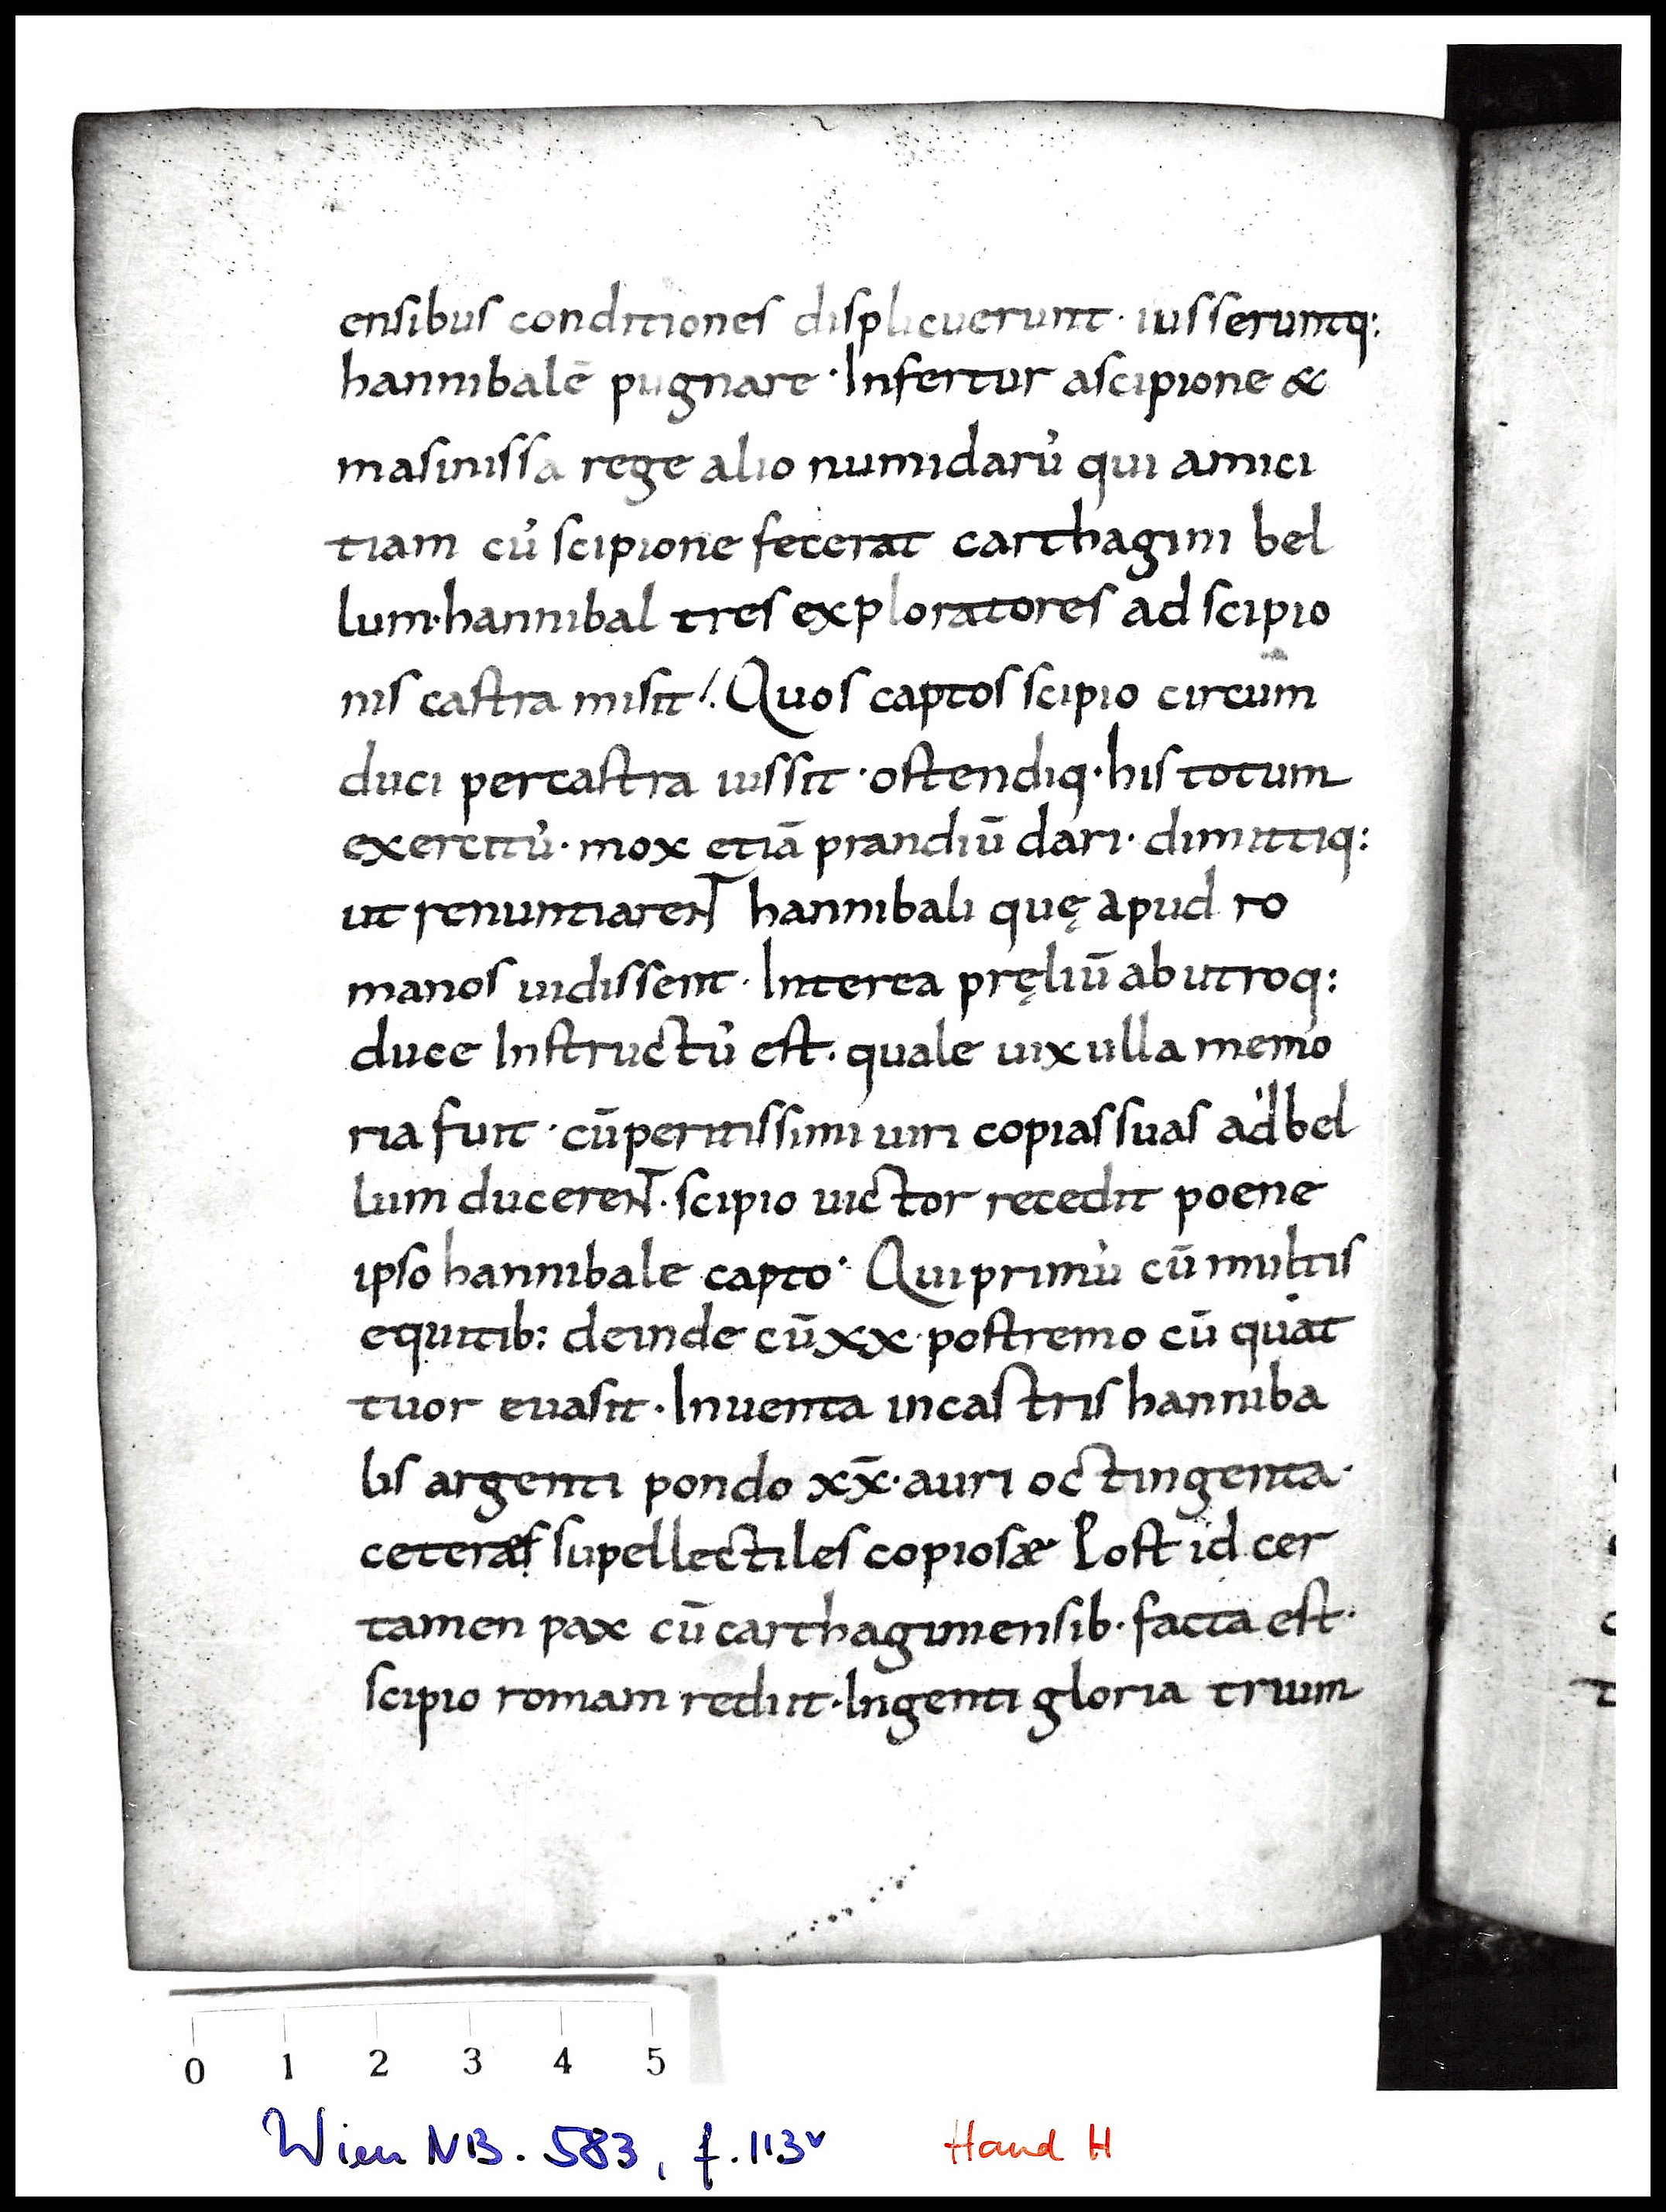 ensibus conditiones displicuerunt · iusseruntq:
hannibalē pugnare · Infertur ascipione &
masinissa rege alio numidarū qui amici
tiam cū scipione fecerat carthagini bel
lum · hannibal tres exploratores ad scipio
nis castra misit ·/ Quos captos scipio circum
duci percastra iussit · ostendiq · his totum
exercitū · mox etiā prandiū dari · dimittiq:
ut renuntiareNT hannibali quę apud ro
manos uidissent · Interea pręliū ab utroq:
duce Instructū est · quale uix ulla memo
ria fuit · cū peritissimi uiri copias suas ad bel
lum ducereNT · scipio uictor recedit poene
ipso hannibale capto · Qui primū cū multis
equitib: deinde cū xx · postremo cū quat
tuor euasit · Inuenta incastris hanniba
lis argenti pondo xx̄ · auri octingenta ·
ceteræs supellectiles copiosæ Post id cer
tamen pax cū carthaginensib · facta est ·
scipio romam rediit · Ingenti gloria trium
0 1 2 3 4 5
Wien NB. 583, f. 113v Hand H